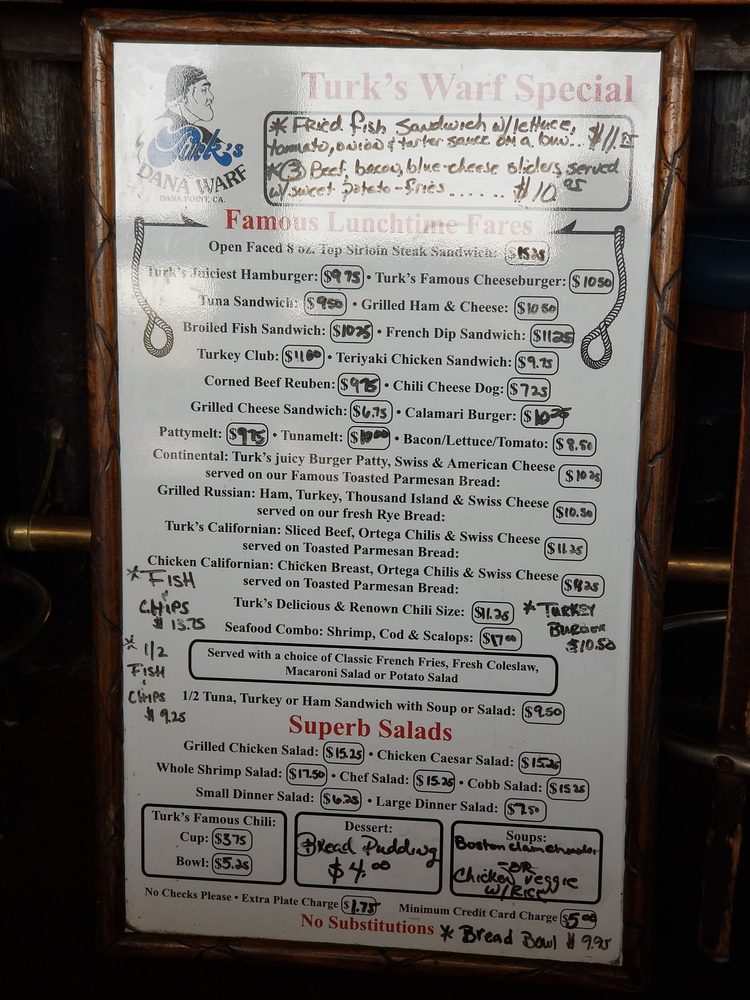 Turk's Warf Special
Turk's
DANA WARF
DANA POINT, CA.
* Fried fish Sandwich w/lettuce,
tomato, onion & tarter sauce on a bun... $11.25
*(3) Beef, bacon, blue-cheese sliders, served
w/sweet potato-fries....... $10.95
Famous Lunchtime Fares
Open Faced 8 oz. Top Sirloin Steak Sandwich: $15.25
Turk's Juiciest Hamburger: $9.75 • Turk's Famous Cheeseburger: $10.50
Tuna Sandwich: $9.50 • Grilled Ham & Cheese: $10.50
Broiled Fish Sandwich: $10.25 • French Dip Sandwich: $11.25
Turkey Club: $11.00 • Teriyaki Chicken Sandwich: $9.75
Corned Beef Reuben: $9.75 • Chili Cheese Dog: $7.25
Grilled Cheese Sandwich: $6.75 • Calamari Burger: $10.25
Pattymelt: $9.75 • Tunamelt: $10.00 • Bacon/Lettuce/Tomato: $8.50
Continental: Turk's juicy Burger Patty, Swiss & American Cheese
served on our Famous Toasted Parmesan Bread: $10.25
Grilled Russian: Ham, Turkey, Thousand Island & Swiss Cheese
served on our fresh Rye Bread: $10.50
Turk's Californian: Sliced Beef, Ortega Chilis & Swiss Cheese
served on Toasted Parmesan Bread: $11.25
Chicken Californian: Chicken Breast, Ortega Chilis & Swiss Cheese
served on Toasted Parmesan Bread:
* FISH
&
CHIPS
$13.75
Turk's Delicious & Renown Chili Size: $11.25
* TURKEY
BURGER
$10.50
Seafood Combo: Shrimp, Cod & Scalops: $17.00
* 1/2
FISH
&
CHIPS
$9.25
Served with a choice of Classic French Fries, Fresh Coleslaw,
Macaroni Salad or Potato Salad
1/2 Tuna, Turkey or Ham Sandwich with Soup or Salad: $9.50
Superb Salads
Grilled Chicken Salad: $15.25 • Chicken Caesar Salad: $15.25
Whole Shrimp Salad: $17.50 • Chef Salad: $15.25 • Cobb Salad: $15.25
Small Dinner Salad: $6.25 • Large Dinner Salad: $7.50
Turk's Famous Chili:
Cup: $3.75
Bowl: $5.25
Dessert:
Bread Pudding
$4.00
Soups:
Boston clam chowder
-OR-
Chicken veggie
w/RICE
No Checks Please • Extra Plate Charge $1.75 Minimum Credit Card Charge $5.00
No Substitutions * Bread Bowl $9.95